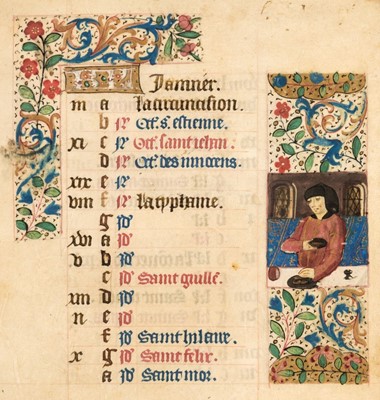 Janvier.
iii a La circuncision.
b N~ Oct. s. estienne.
xi c N~ Oct. saint iehan.
d N~ Oct. des innocens.
xix e N~
viii f N~ La typhaine.
g id~
xvi a id~
v b id~
c id~ Saint guille.
xiii d id~
ii e id~
f id~ Saint hilaire.
x g id~ Saint felix.
a id~ Saint mor.